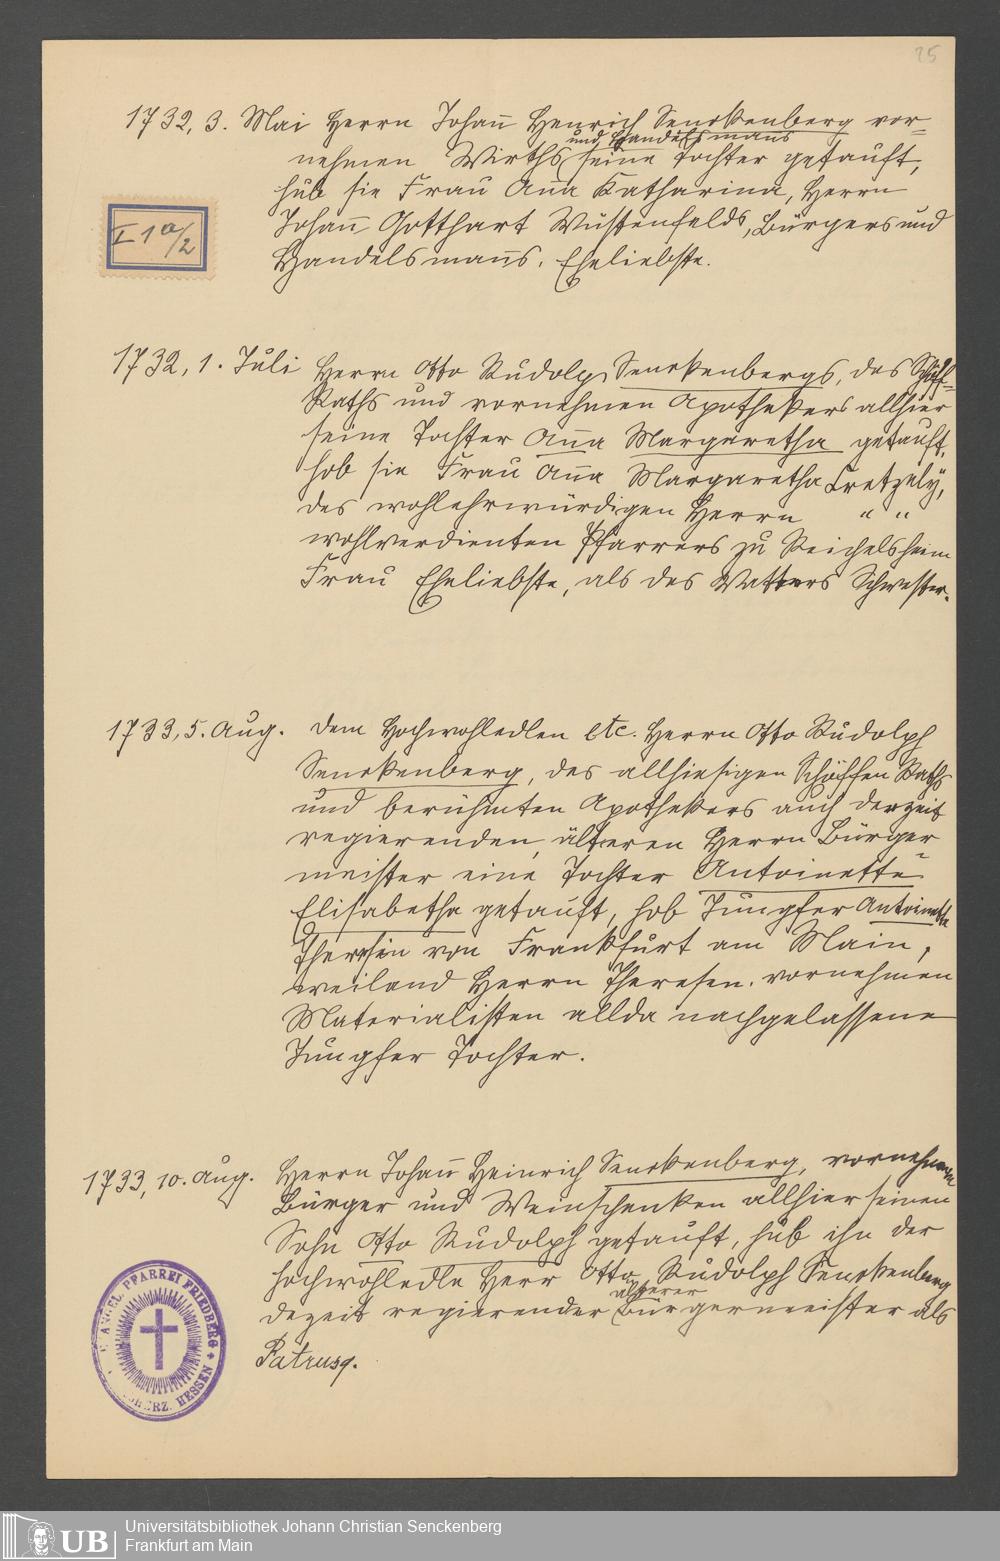 25
1732, 3. Mai Herrn Johan̅ Henrich Senckenberg vor=
und Handelsmans
nehmen Wirths seine Tochter getauft,
hub sie Frau An̅a Katharina, Herrn
Johan̅ Gotthart Wustenfelds, Bürgers und
Handelsman̅s. Eheliebste.
I 1 a/2
1732, 1. Juli Herrn Otto Rudolph Senckenbergs, des Schöff=
Raths und vornehmen Apothekers allhier
seine Tochter An̅a Margaretha getauft,
hob sie Frau An̅a Margaretha Cretzely,
des wohlehrwürdigen Herrn " "
wohlverdienten Pfarrers zu Reichelsheim
Frau Eheliebste, als des Vatters Schwester.
1733, 5. Aug. Dem Hochwohledlen etc. Herrn Otto Rudolph
Senckenberg, des allhiesigen Schöffen Raths
und berühmten Apothekers auch derzeit
regierenden, älteren Herrn Bürger
meister eine Tochter Antoinette
Elisabetha getauft, hob Jungfer Antoinette
Theresin von Frankfurt am Main,
weiland Herrn Theresen. vornehmen
Materialisten allda nachgelassene
Jungfer Tochter.
1733, 10. Aug. Herrn Johan̅ Heinrich Senckenberg, vornehmen
Bürger und Weinschenken allhier seinen
Sohn Otto Rudolph getauft, hub ihn der
hochwohledle Herr Otto Rudolph Senckenberg
älterer
dezeit regierender Bürgermeister als
Patrusq.
EVANGEL. PFARREI FRIEDBERG
HERZ. HESSEN
UB
Universitätsbibliothek Johann Christian Senckenberg
Frankfurt am Main